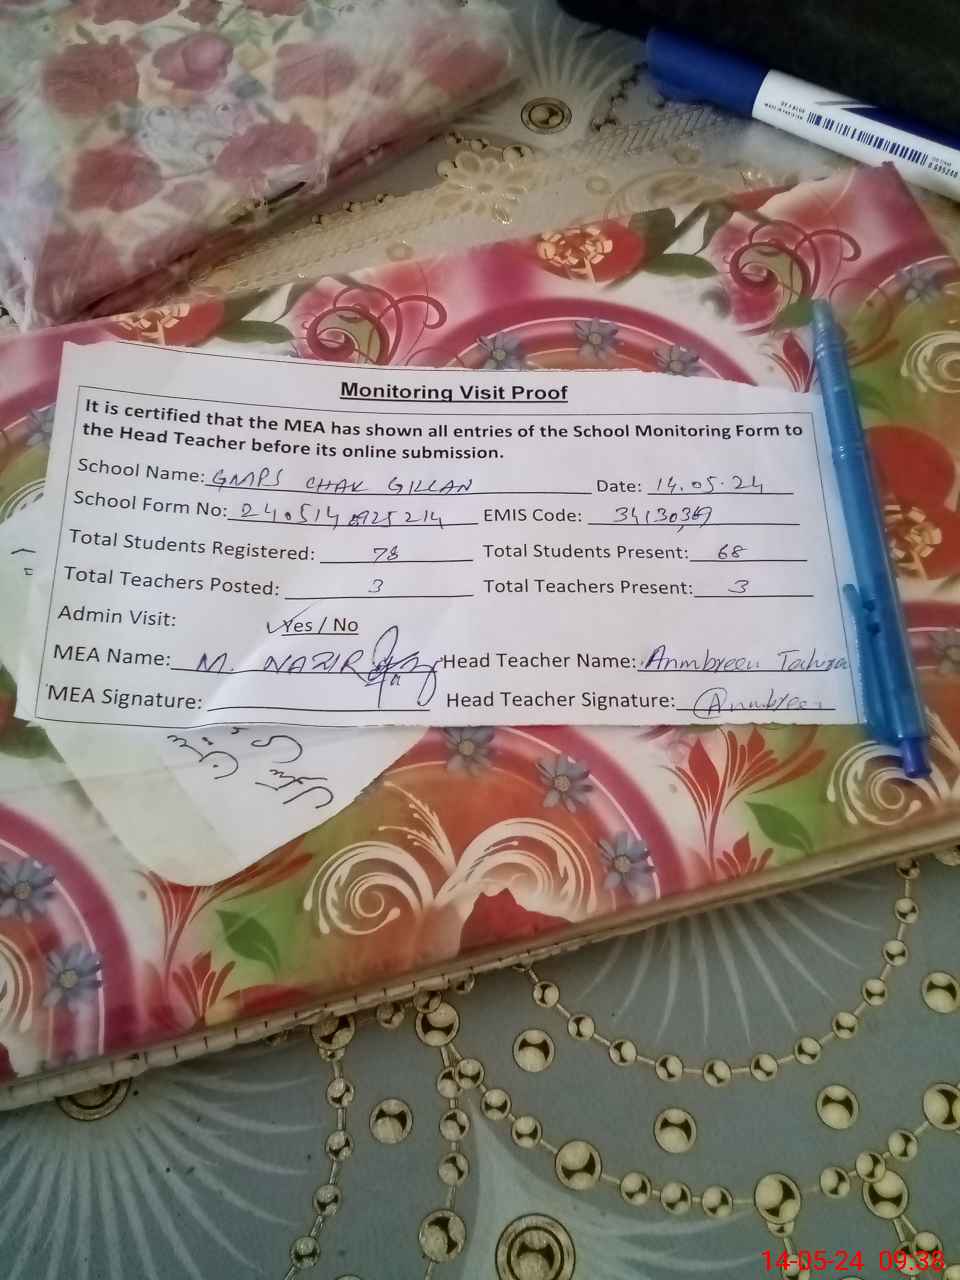 Monitoring Visit Proof
It is certified that the MEA has shown all entries of the School Monitoring Form to
the Head Teacher before its online submission.
School Name: GMPS CHAK GILLAN Date: 14.05.24
School Form No: EMIS Code:
Total Students Registered: 78 Total Students Present: 68
Total Teachers Posted: 3 Total Teachers Present: 3
Admin Visit: Yes / No
MEA Name: M. NAZIR Head Teacher Name: Anmbreen
MEA Signature: Head Teacher Signature: Anmbreen
14-05-24 09:38